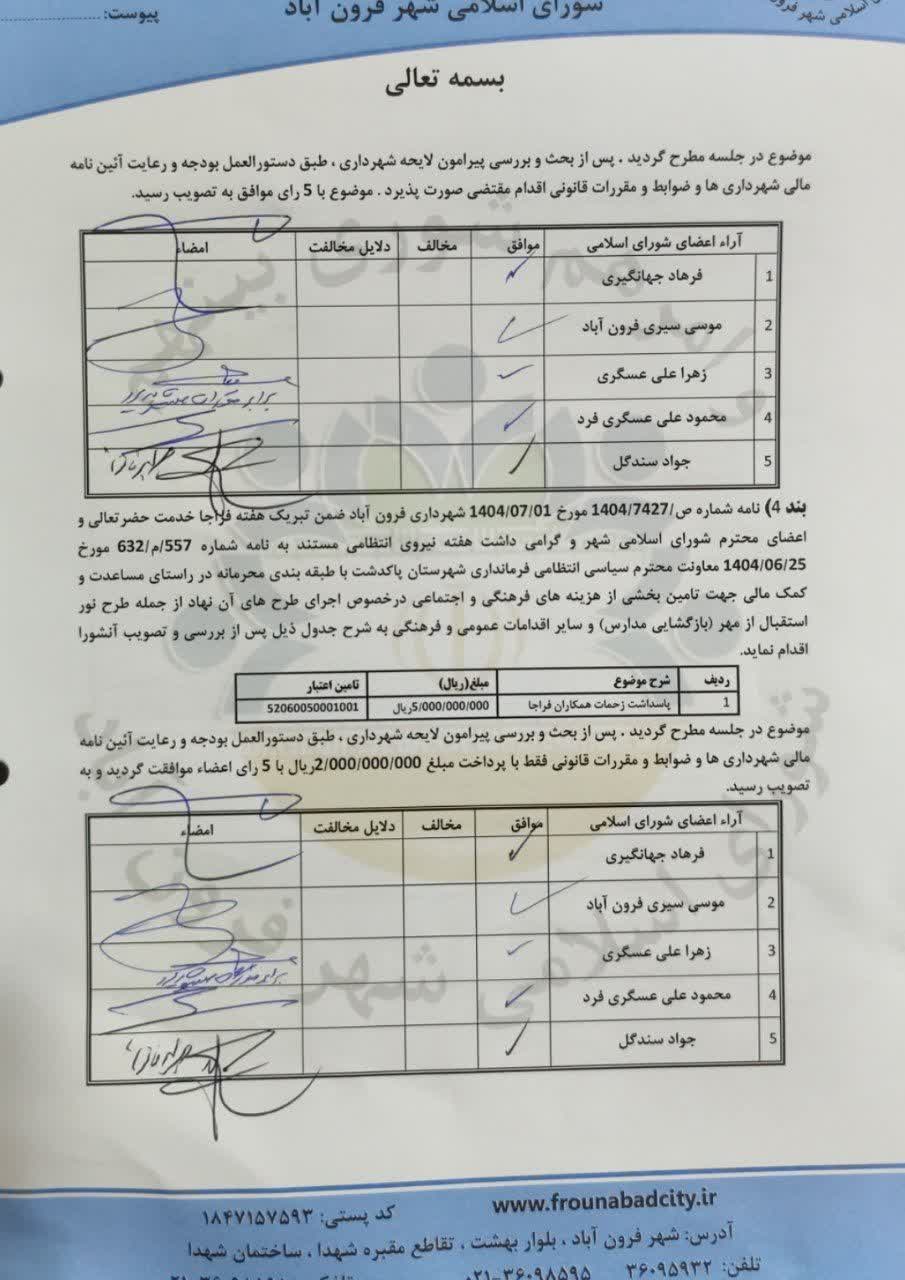 شورای اسلامی شهر فرون آباد
اسلامی شهر فرون
پیوست:
بسمه تعالی
موضوع در جلسه مطرح گردید . پس از بحث و بررسی پیرامون لایحه شهرداری ، طبق دستورالعمل بودجه و رعایت آئین نامه
مالی شهرداری ها و ضوابط و مقررات قانونی اقدام مقتضی صورت پذیرد . موضوع با 5 رای موافق به تصویب رسید.
آراء اعضای شورای اسلامی موافق مخالف دلایل مخالفت امضاء
1 فرهاد جهانگیری
2 موسی سیری فرون آباد
3 زهرا علی عسگری
4 محمود علی عسگری فرد
5 جواد سندگل
بند 4) نامه شماره ص/1404/7427 مورخ 1404/07/01 شهرداری فرون آباد ضمن تبریک هفته فراجا خدمت حضرتعالی و
اعضای محترم شورای اسلامی شهر و گرامی داشت هفته نیروی انتظامی مستند به نامه شماره 557/م/632 مورخ
1404/06/25 معاونت محترم سیاسی انتظامی فرمانداری شهرستان پاکدشت با طبقه بندی محرمانه در راستای مساعدت و
کمک مالی جهت تامین بخشی از هزینه های فرهنگی و اجتماعی درخصوص اجرای طرح های آن نهاد از جمله طرح نور
استقبال از مهر (بازگشایی مدارس) و سایر اقدامات عمومی و فرهنگی به شرح جدول ذیل پس از بررسی و تصویب آنشورا
اقدام نماید.
ردیف شرح موضوع مبلغ(ریال) تامین اعتبار
1 پاسداشت زحمات همکاران فراجا 5/000/000/000ریال 52060050001001
موضوع در جلسه مطرح گردید . پس از بحث و بررسی پیرامون لایحه شهرداری ، طبق دستورالعمل بودجه و رعایت آئین نامه
مالی شهرداری ها و ضوابط و مقررات قانونی فقط با پرداخت مبلغ 2/000/000/000ریال با 5 رای اعضاء موافقت گردید و به
تصویب رسید.
آراء اعضای شورای اسلامی موافق مخالف دلایل مخالفت امضاء
1 فرهاد جهانگیری
2 موسی سیری فرون آباد
3 زهرا علی عسگری
4 محمود علی عسگری فرد
5 جواد سندگل
www.frounabadcity.ir
کد پستی: ۱۸۴۷۱۵۷۵۹۳
آدرس: شهر فرون آباد ، بلوار بهشت ، تقاطع مقبره شهدا ، ساختمان شهدا
تلفن: ۳۶۰۹۵۹۳۲ ۰۲۱-۳۶۰۹۸۵۹۵